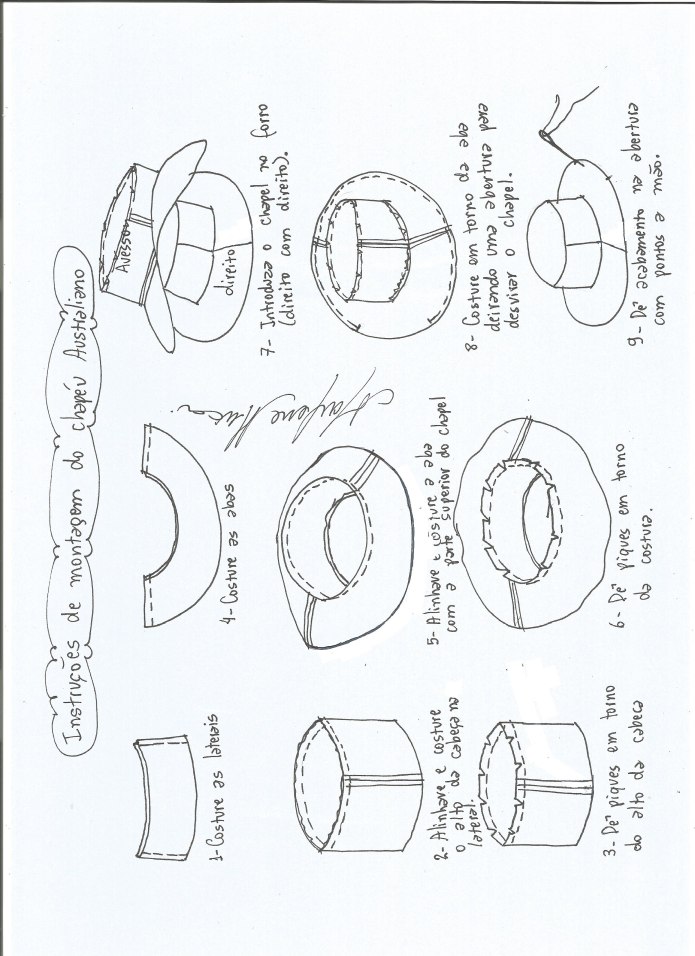 Instruções de montagem do chapéu Australiano
1-Costure as laterais
2-Alinhave e costure
o alto da cabeça na
lateral.
3-Dê piques em torno
do alto da cabeça
4-Costure as abas
5-Alinhave e costure a aba
com a parte superior do chapel
6-Dê piques em torno
da costura.
Avesso
direito
7-Introduza o chapel no forro
(direito com direito).
8-Costure em torno da aba
deixando uma abertura para
desvirar o chapel.
9-Dê acabamento na abertura
com pontos a mão.